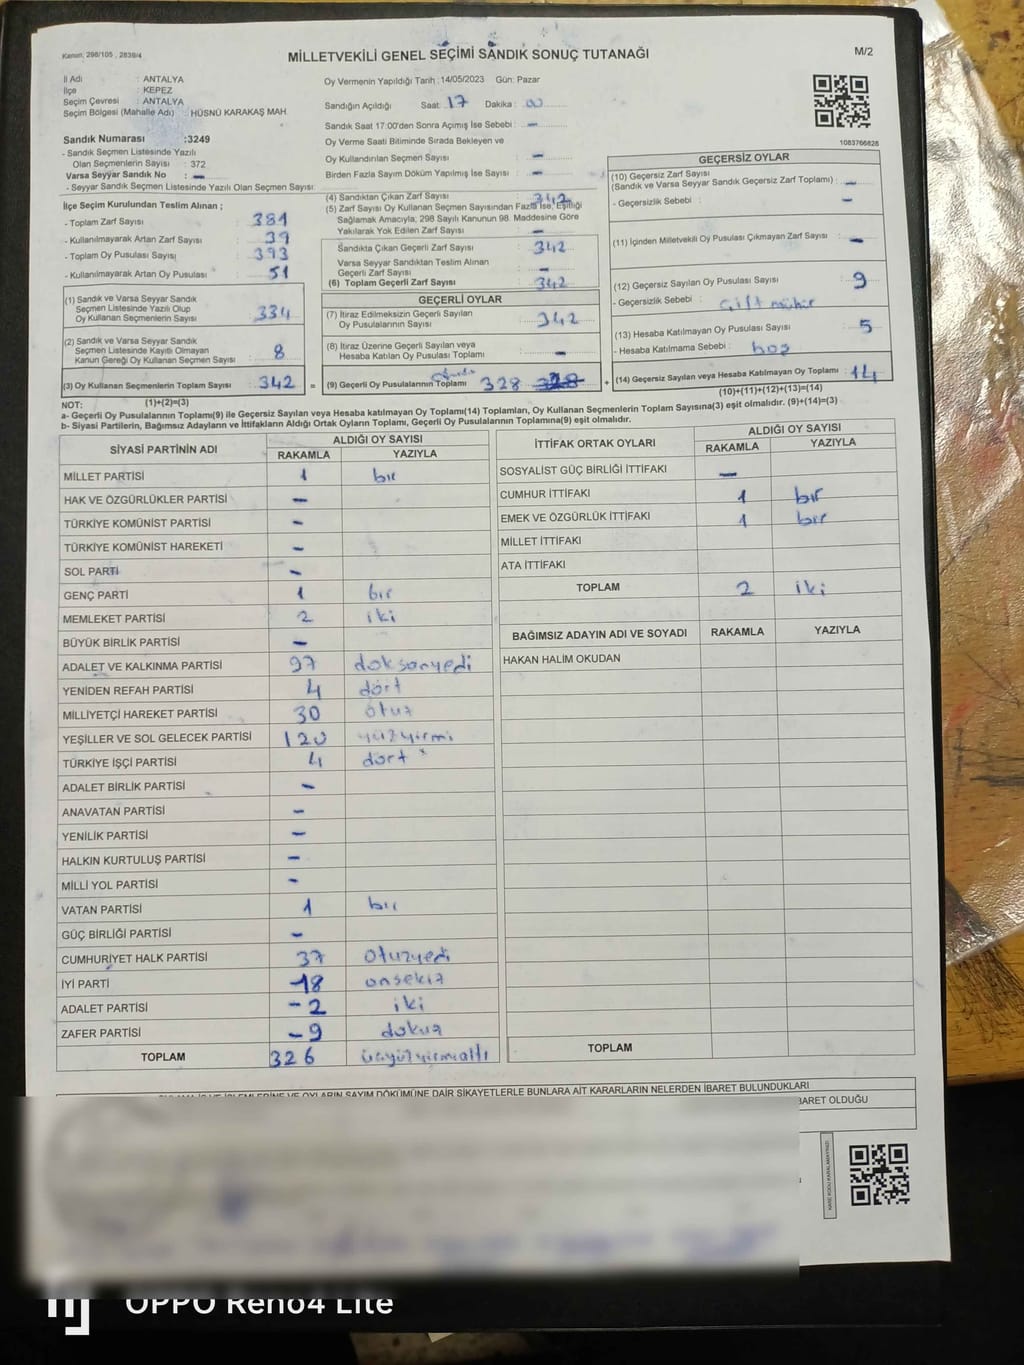 Kanun, 298/105 , 2839/4
MİLLETVEKİLİ GENEL SEÇİMİ SANDIK SONUÇ TUTANAĞI
M/2
İl Adı : ANTALYA
İlçe : KEPEZ
Seçim Çevresi : ANTALYA
Seçim Bölgesi (Mahalle Adı) : HÜSNÜ KARAKAŞ MAH
Sandık Numarası :3249
- Sandık Seçmen Listesinde Yazılı
Olan Seçmenlerin Sayısı : 372
Varsa Seyyar Sandık No : -
- Seyyar Sandık Seçmen Listesinde Yazılı Olan Seçmen Sayısı:
İlçe Seçim Kurulundan Teslim Alınan ;
- Toplam Zarf Sayısı : 381
- Kullanılmayarak Artan Zarf Sayısı : 39
- Toplam Oy Pusulası Sayısı : 393
- Kullanılmayarak Artan Oy Pusulası : 51
(1) Sandık ve Varsa Seyyar Sandık
Seçmen Listesinde Yazılı Olup
Oy Kullanan Seçmenlerin Sayısı : 334
(2) Sandık ve Varsa Seyyar Sandık
Seçmen Listesinde Kayıtlı Olmayan
Kanun Gereği Oy Kullanan Seçmen Sayısı : 8
(3) Oy Kullanan Seçmenlerin Toplam Sayısı : 342
(1)+(2)=(3)
Oy Vermenin Yapıldığı Tarih :14/05/2023 Gün: Pazar
Sandığın Açıldığı Saat: 17 Dakika : 00
Sandık Saat 17:00'den Sonra Açımış İse Sebebi : -
Oy Verme Saati Bitiminde Sırada Bekleyen ve
Oy Kullandırılan Seçmen Sayısı : -
Birden Fazla Sayım Döküm Yapılmış İse Sayısı : -
(4) Sandıktan Çıkan Zarf Sayısı : 342
(5) Zarf Sayısı Oy Kullanan Seçmen Sayısından Fazla İse, Eşitliği
Sağlamak Amacıyla; 298 Sayılı Kanunun 98. Maddesine Göre
Yakılarak Yok Edilen Zarf Sayısı : -
Sandıkta Çıkan Geçerli Zarf Sayısı : 342
Varsa Seyyar Sandıktan Teslim Alınan
Geçerli Zarf Sayısı : -
(6) Toplam Geçerli Zarf Sayısı : 342
GEÇERLİ OYLAR
(7) İtiraz Edilmeksizin Geçerli Sayılan
Oy Pusulalarının Sayısı : 342
(8) İtiraz Üzerine Geçerli Sayılan veya
Hesaba Katılan Oy Pusulası Toplamı : -
= (9) Geçerli Oy Pusulalarının Toplamı 328 328 +
1083766828
GEÇERSİZ OYLAR
(10) Geçersiz Zarf Sayısı
(Sandık ve Varsa Seyyar Sandık Geçersiz Zarf Toplamı) : -
- Geçersizlik Sebebi : -
(11) İçinden Milletvekili Oy Pusulası Çıkmayan Zarf Sayısı : -
(12) Geçersiz Sayılan Oy Pusulası Sayısı : 9
- Geçersizlik Sebebi : Çift mühür
(13) Hesaba Katılmayan Oy Pusulası Sayısı : 5
- Hesaba Katılmama Sebebi : boş
(14) Geçersiz Sayılan veya Hesaba Katılmayan Oy Toplamı : 14
(10)+(11)+(12)+(13)=(14)
NOT:
a- Geçerli Oy Pusulalarının Toplamı(9) ile Geçersiz Sayılan veya Hesaba katılmayan Oy Toplamı(14) Toplamları, Oy Kullanan Seçmenlerin Toplam Sayısına(3) eşit olmalıdır. (9)+(14)=(3)
b- Siyasi Partilerin, Bağımsız Adayların ve İttifakların Aldığı Ortak Oyların Toplamı, Geçerli Oy Pusulalarının Toplamına(9) eşit olmalıdır.
SİYASİ PARTİNİN ADI ALDIĞI OY SAYISI
RAKAMLA YAZIYLA
MİLLET PARTİSİ 1 bir
HAK VE ÖZGÜRLÜKLER PARTİSİ -
TÜRKİYE KOMÜNİST PARTİSİ -
TÜRKİYE KOMÜNİST HAREKETİ -
SOL PARTİ -
GENÇ PARTİ 1 bir
MEMLEKET PARTİSİ 2 iki
BÜYÜK BİRLİK PARTİSİ -
ADALET VE KALKINMA PARTİSİ 97 doksanyedi
YENİDEN REFAH PARTİSİ 4 dört
MİLLİYETÇİ HAREKET PARTİSİ 30 otuz
YEŞİLLER VE SOL GELECEK PARTİSİ 120 yüzyirmi
TÜRKİYE İŞÇİ PARTİSİ 4 dört
ADALET BİRLİK PARTİSİ -
ANAVATAN PARTİSİ -
YENİLİK PARTİSİ -
HALKIN KURTULUŞ PARTİSİ -
MİLLİ YOL PARTİSİ -
VATAN PARTİSİ 1 bir
GÜÇ BİRLİĞİ PARTİSİ -
CUMHURİYET HALK PARTİSİ 37 otuzyedi
İYİ PARTİ -18 onsekiz
ADALET PARTİSİ -2 iki
ZAFER PARTİSİ -9 dokuz
TOPLAM 326 üçyüzyirmialtı
İTTİFAK ORTAK OYLARI ALDIĞI OY SAYISI
RAKAMLA YAZIYLA
SOSYALİST GÜÇ BİRLİĞİ İTTİFAKI -
CUMHUR İTTİFAKI 1 bir
EMEK VE ÖZGÜRLÜK İTTİFAKI 1 bir
MİLLET İTTİFAKI
ATA İTTİFAKI
TOPLAM 2 iki
BAĞIMSIZ ADAYIN ADI VE SOYADI RAKAMLA YAZIYLA
HAKAN HALİM OKUDAN
TOPLAM
OYLARIN SAYIM DÖKÜMÜNE DAİR ŞİKAYETLERLE BUNLARA AİT KARARLARIN NELERDEN İBARET BULUNDUKLARI
İBARET OLDUĞU
OPPO Reno4 Lite